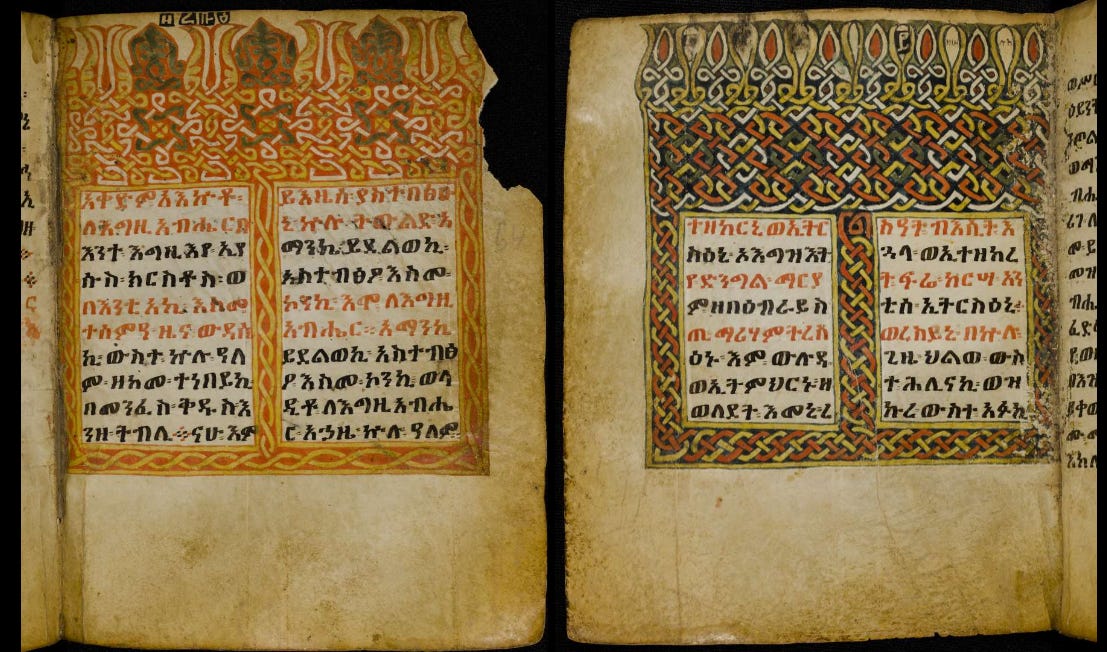 ዘረቡዕ
አቀድም አእኵቶ፡
ለእግዚአብሔር በ
እንተ እግዚእየ ኢየ
ሱስ፡ ክርስቶስ፡ ወ
በእንቲአኪ፡ እስመ
ተሰምዓ፡ ዜና ውዳሴ
ኪ፡ ውስተ ኵሉ ዓለ
ም፡ ዘከመ፡ ተነበይኪ
በመንፈስ፡ ቅዱስ እ
ንዘ፡ ትብሊ፡ ናሁ፡ እም
ይእዜሰ ያስተበፅዑ
ኒ፡ ኵሉ ትውልድ፡ አ
ማንኬ፡ ይደልወኪ፡
አስተብፅዖ እስመ፡
ኮንኪ፡ እሞ ለእግዚ
አብሔር። አማንኬ
ይደልወኪ፡ አስተብፅ
ዖ እስመ፡ ኮንኪ፡ ወላ
ዲቶ ለእግዚአብሔ
ር፡ አኃዜ፡ ኵሉ ዓለም፡
64
ተዘከርኒ ወኢትር
ስዕኒ፡ ኦእግዝእት
የ ድንግል ማርያ
ም ዘበዕብራይስ
ጢ ማሪሃም ትረስ
ዕኑ፡ እም ውሉዳ
ወኢትምህርኑ፡ ዘ
ወለደት፡ እመኒ፡ ረ
ስዓት፡ ብእሲት እ
ጓላ፡ ወኢተዘከረ
ት፡ ፍሬ፡ ከርሣ፡ አን
ቲሰ ኢትርስዕኒ፡
ወረከይኒ፡ በኵሉ፡
ጊዜ፡ ህልወ፡ ውስ
ተ ሕሊናኪ፡ ወዝ
ክረ፡ ውስተ አፉኪ፡